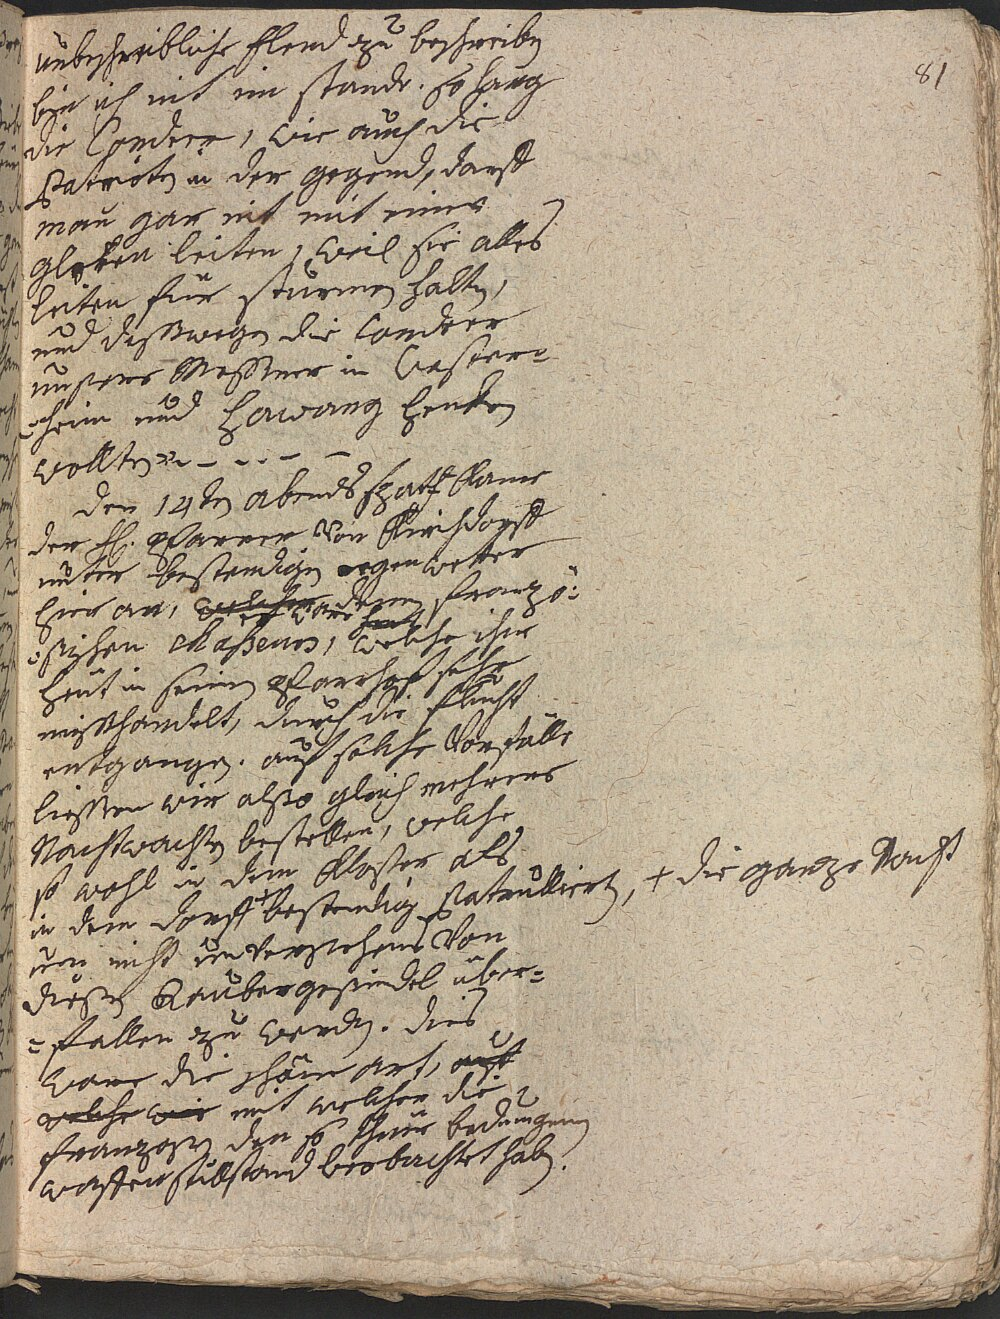 81
unbeschreibliche Elend zu beschreiben
bin ich nit im stande. so lang
die Condeer, wie auch die
Patrioten in der gegend, darff
man gar nit mit einer
gloken leiten, weil sie alles
leiten für sturmen halten,
und desswegen die Condeer
unsere Messmer in Wester=
=heim und Hawang henken
wollten - - - - -
Den 14ten abends spatt kame
der H. Pfarrer von Kirchdorff
unter bestendigen regenwetter
hier an, welcher denen franzö=
er ware
=sischen Maßeurs, welche ihn
heut in seinem Pfarrhof sehr
misshandelt, durch die flucht
entgangen. auf solche Vorfälle
liessen wir also gleich mehrere
Nachtwachten bestellen, welche
so wohl in dem Kloster als
in dem dorff + bestendig Patrulliert, + die ganze Nacht
um nicht unversehens von
diesen Raubergesindel über=
=fallen zu werden. dies
ware die schöne art, auff
welche wir mit welcher die
franzosen den so theur bedungenen
waffenstillstand beobachtet haben.